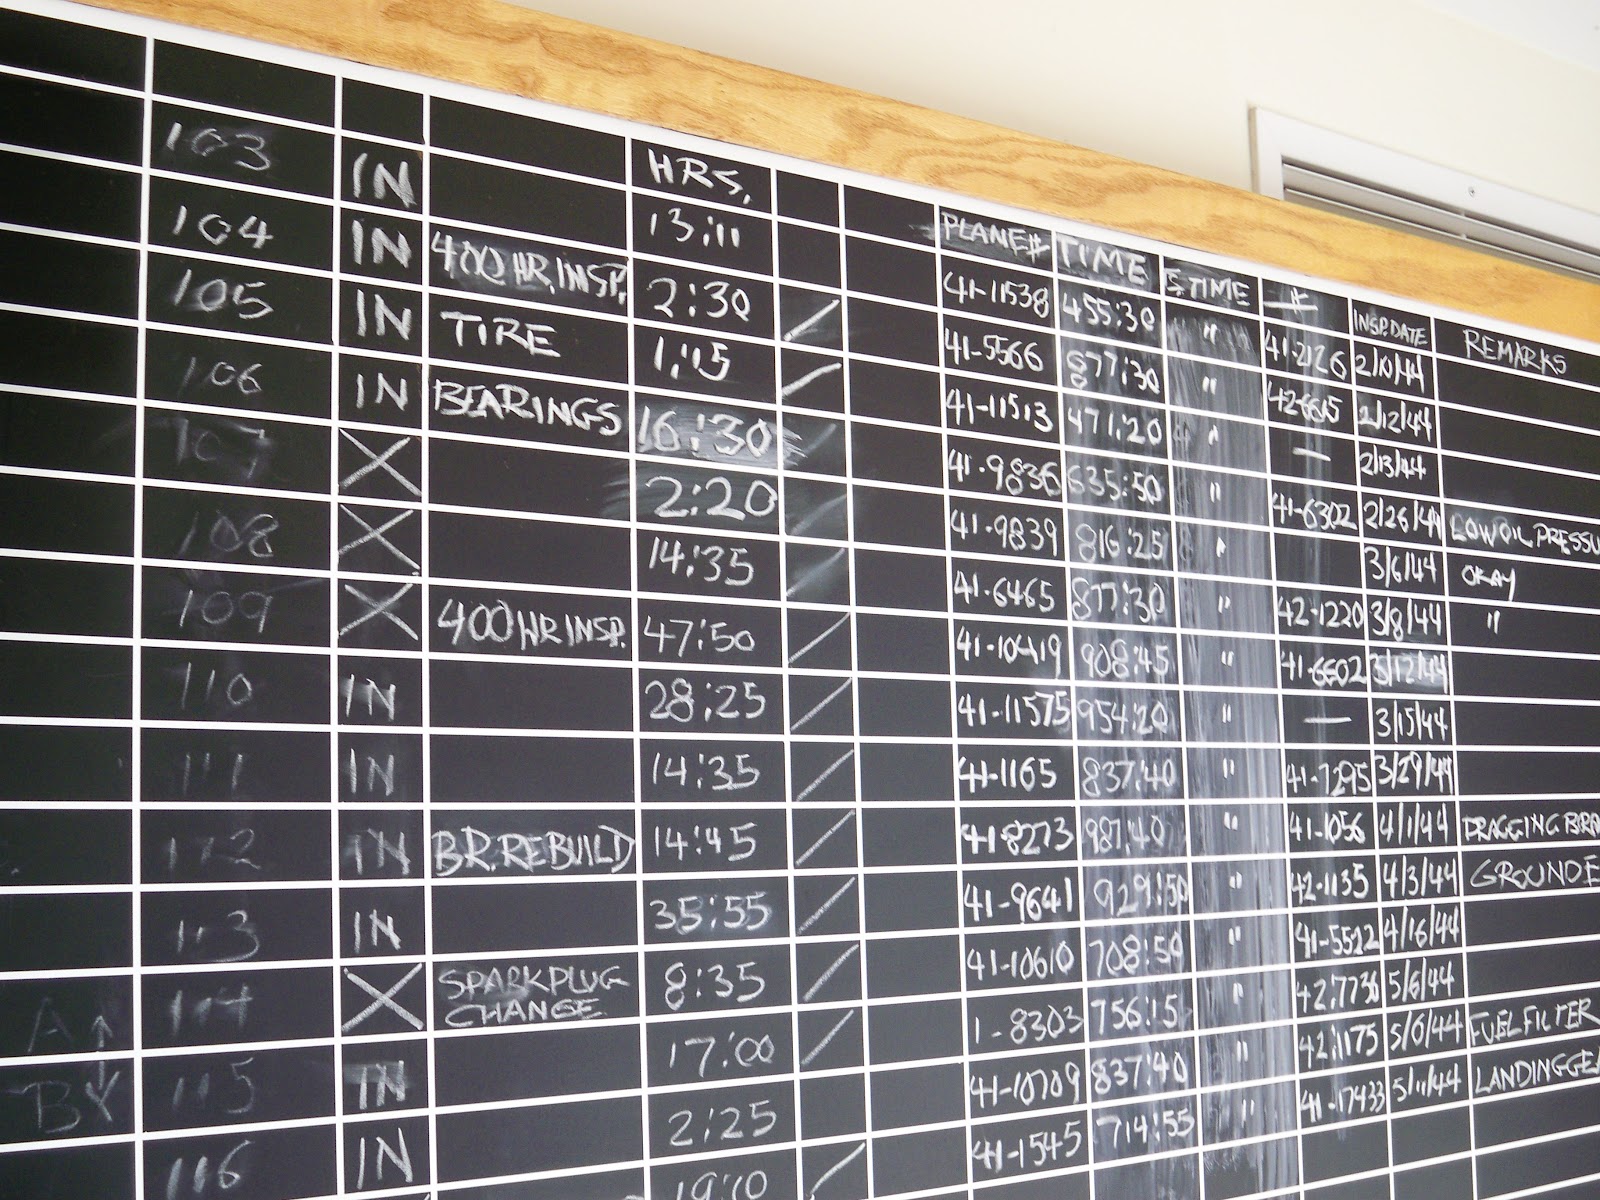 HRS.
103 IN 13:11
104 IN 400 HR. INSP. 2:30
105 IN TIRE 1:15
106 IN BEARINGS 16:30
107 X 2:20
108 X 14:35
109 X 400 HR INSP. 47:50
110 IN 28:25
111 IN 14:35
112 IN BR. REBUILD 14:45
113 IN 35:55
114 X SPARKPLUG 8:35
CHANGE
A 115 IN 17:00
B 116 IN 2:25
19:10
PLANE# TIME S.TIME # INSP.DATE REMARKS
41-11538 455:30 " 41-2126 2/10/44
41-5566 877:30 " 2/12/44
41-11513 471:20 " — 2/13/44
41-9836 635:50 " 41-6302 2/26/44 LOW OIL PRESSU
41-9839 816:25 " 3/6/44 OKAY
41-6465 877:30 " 42-1220 3/8/44 "
41-10419 908:45 " 41-6602 3/12/44
41-11575 954:20 " — 3/15/44
41-1165 837:40 " 41-7295 3/29/44
41-8273 981:40 " 41-1056 4/1/44 DRAGGING BRA
41-9641 929:50 " 42-1135 4/3/44 GROUNDE
41-10610 708:50 " 41-5512 4/16/44
1-8303 756:15 " 42-7736 5/6/44
41-10709 837:40 " 42-1175 5/6/44 FUEL FILTER
41-1545 714:55 " 41-17433 5/11/44 LANDING GEA